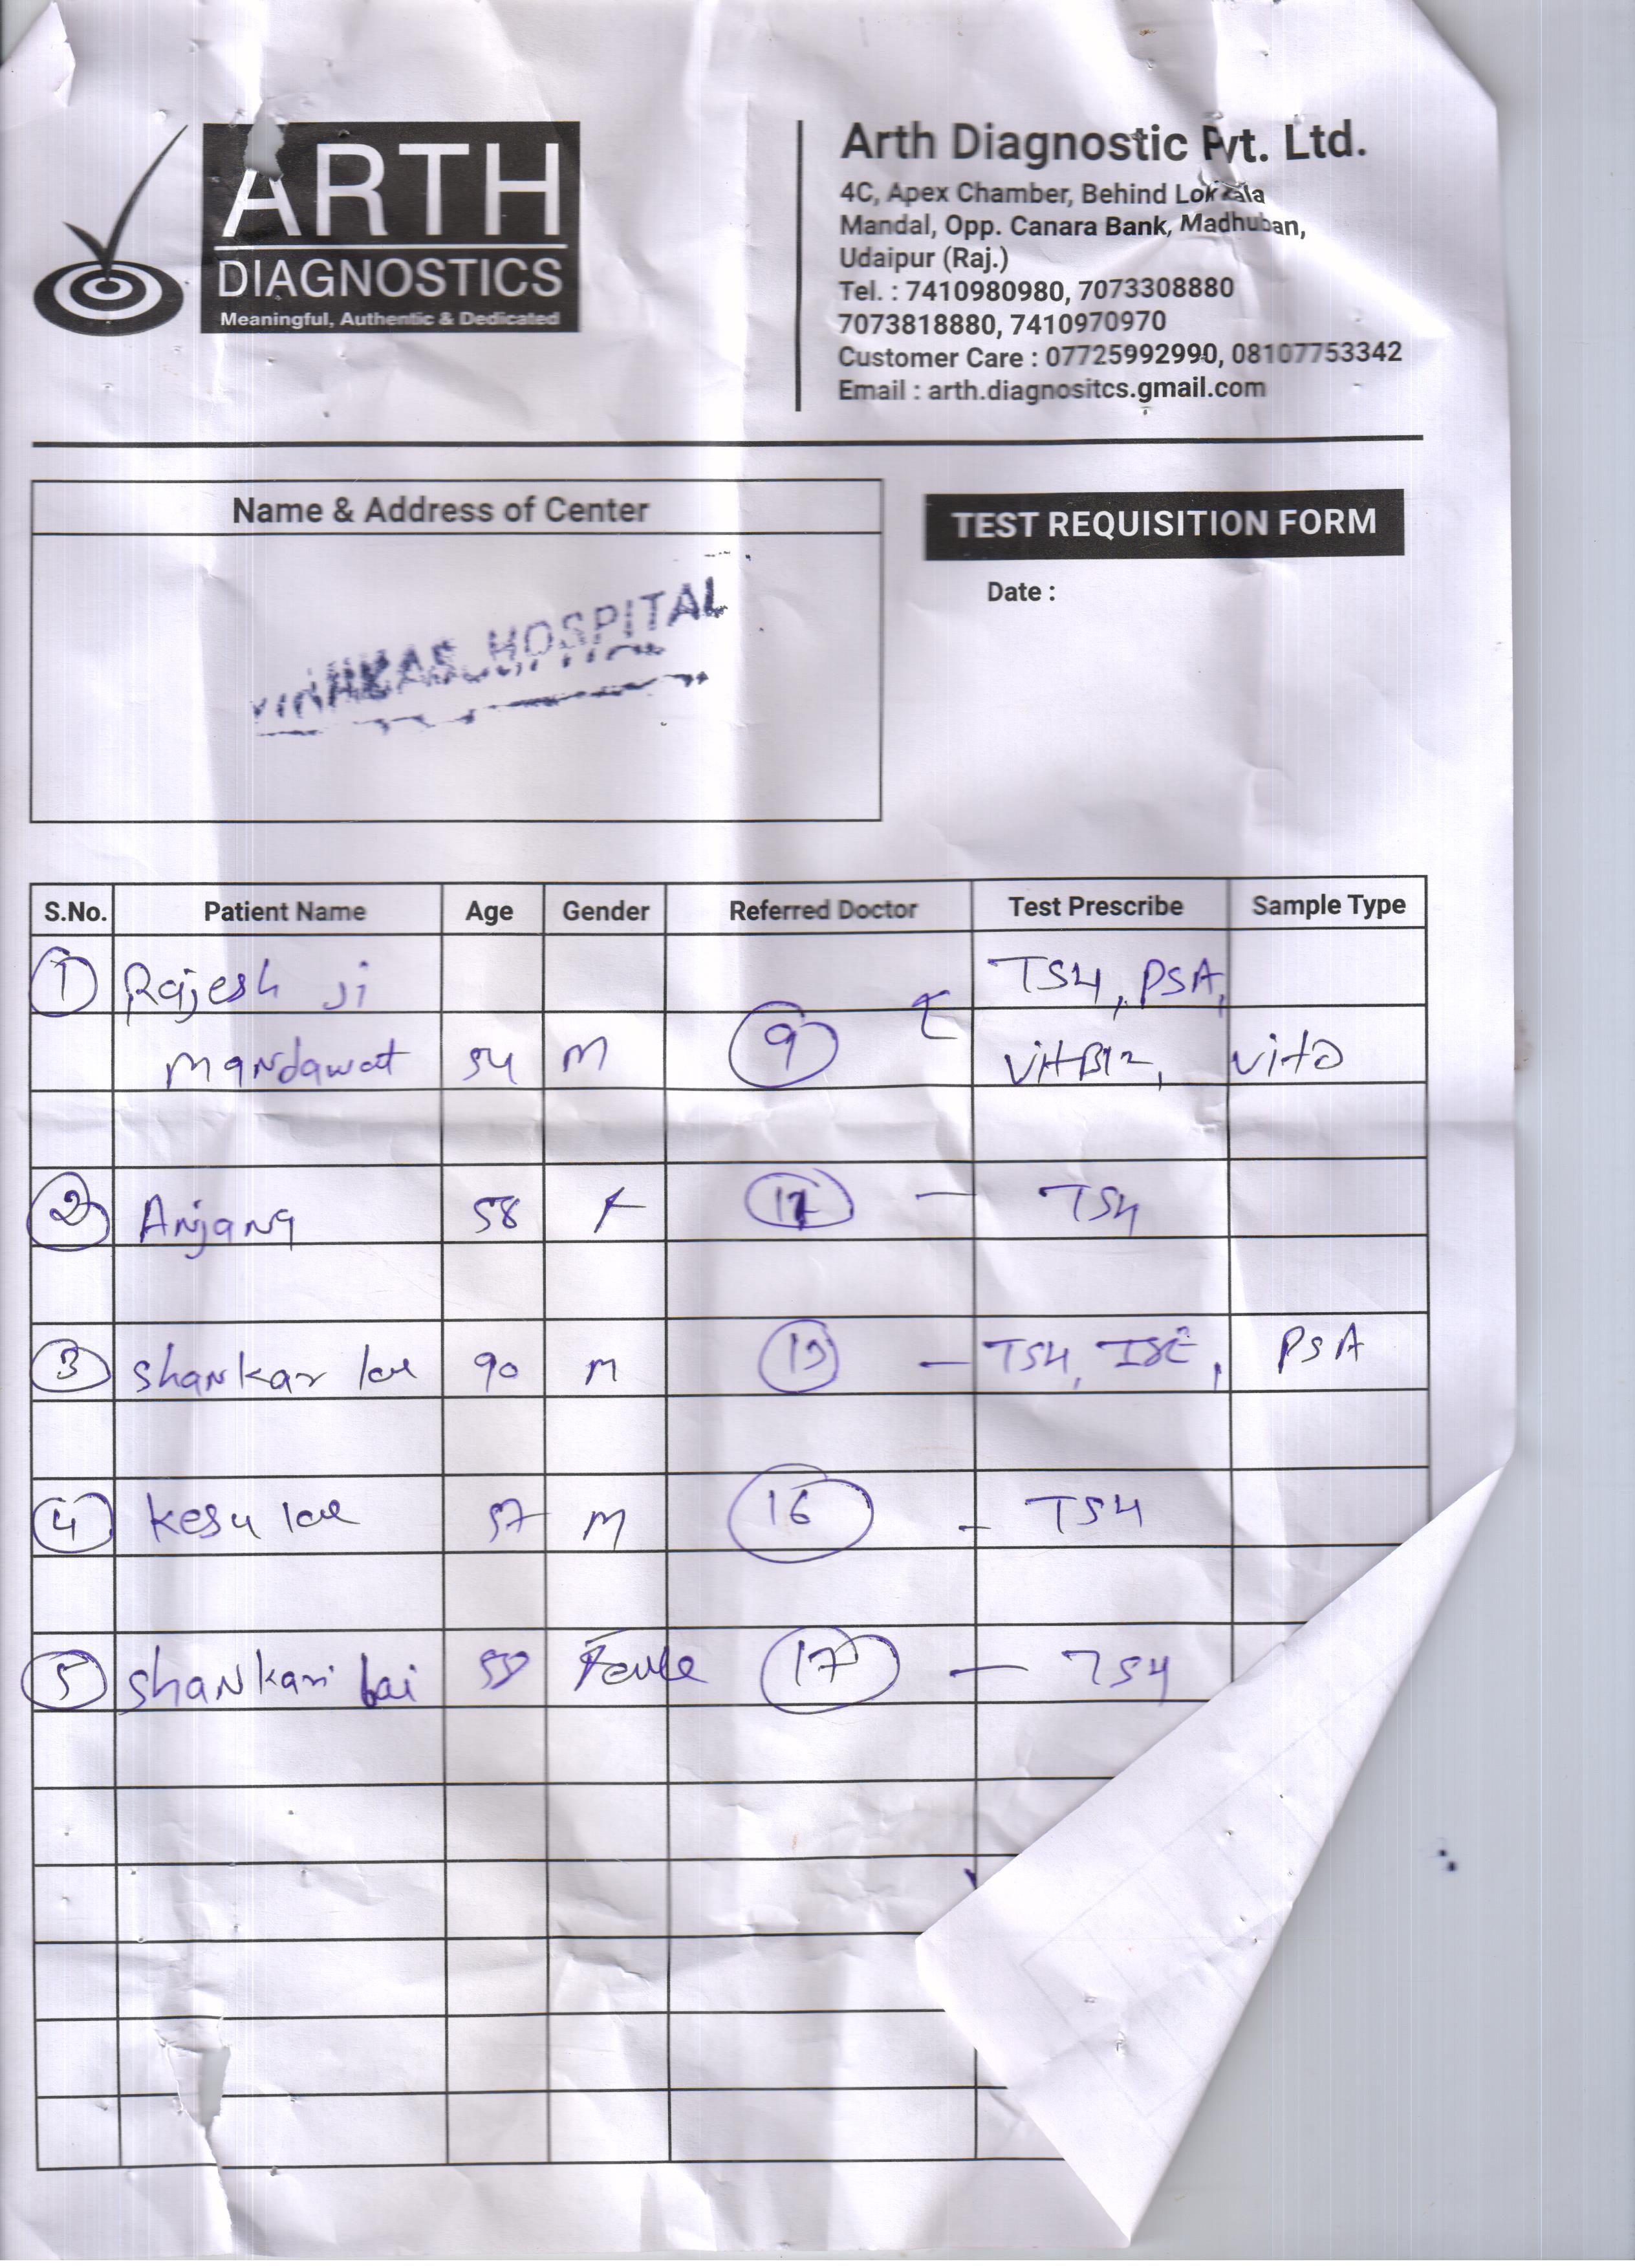 ARTH
DIAGNOSTICS
Meaningful, Authentic & Dedicated
Arth Diagnostic Pvt. Ltd.
4C, Apex Chamber, Behind Lok Kala
Mandal, Opp. Canara Bank, Madhuban,
Udaipur (Raj.)
Tel. : 7410980980, 7073308880
7073818880, 7410970970
Customer Care : 07725992990, 08107753342
Email : arth.diagnositcs.gmail.com
Name & Address of Center
HOSPITAL
TEST REQUISITION FORM
Date :
S.No. Patient Name Age Gender Referred Doctor Test Prescribe Sample Type
1 Rajesh ji TSH, PSA,
Mandawat 54 M 9 VitB12, VitD
2 Anjana 58 F TSH
3 Shankar lal 90 M TSH, PSA
4 Kesu lal 57 M 16 - TSH
5 Shankari bai 17 - TSH